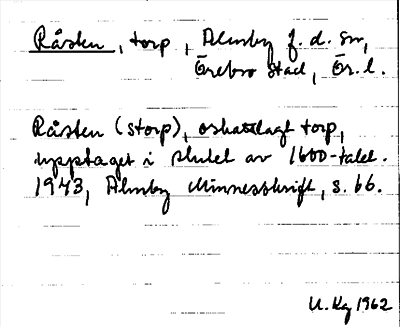 Råsten, torp, Almby f.d. sn,
Örebro stad, Ör. l.
Råsten (storp), oskattlagt torp,
upptaget i slutet av 1600-talet.
1943, Almby Minnesskrift, s. 66.
U. Kg 1962